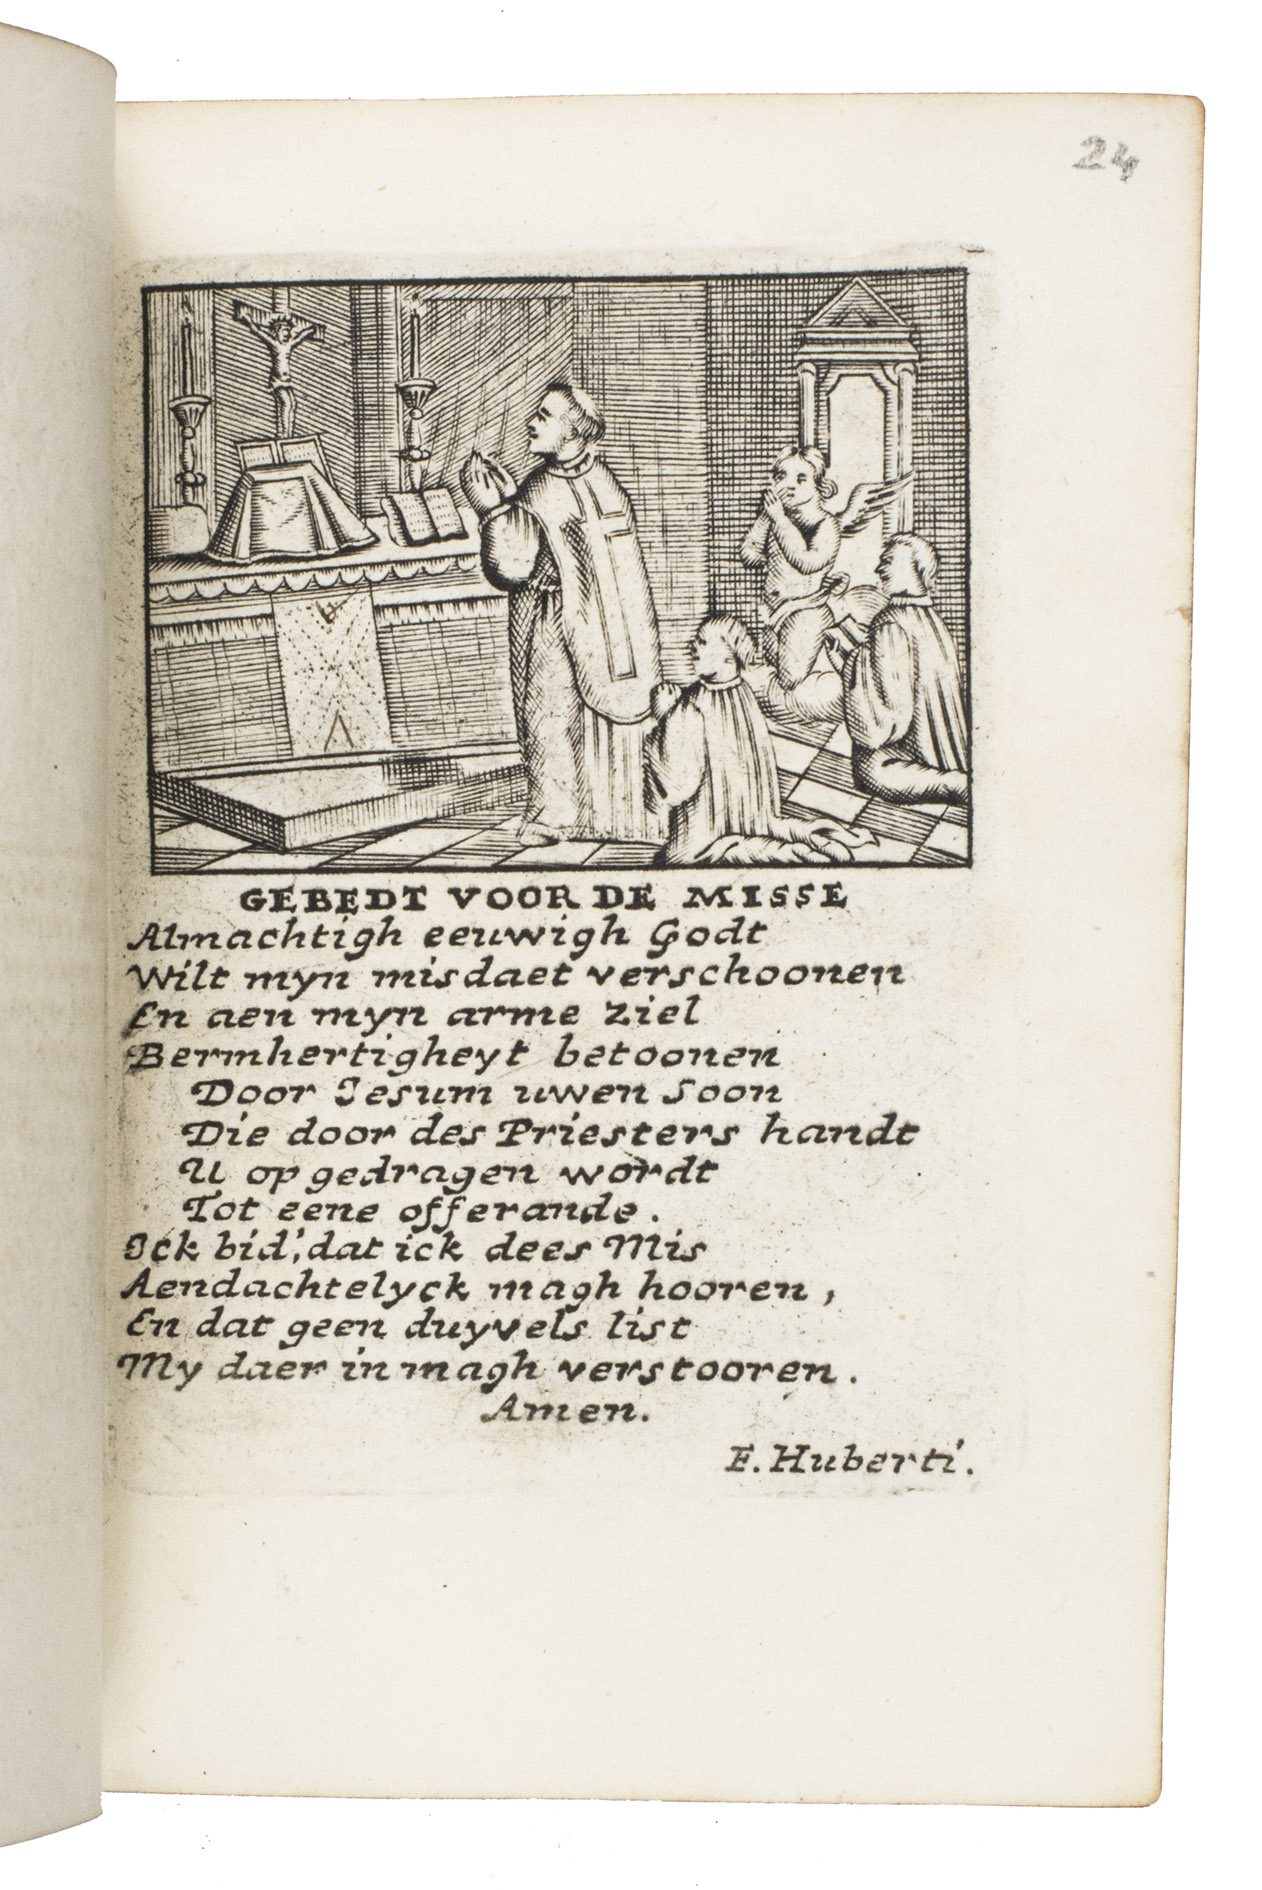 24
GEBEDT VOOR DE MISSE
Almachtigh eeuwigh Godt
Wilt myn misdaet verschoonen
En aen myn arme ziel
Bermhertigheyt betoonen
Door Jesum uwen Soon
Die door des Priesters handt
U op gedragen wordt
Tot eene offerande.
Ick bid', dat ick dees Mis
Aendachtelyck magh hooren,
En dat geen duyvels list
My daer in magh verstooren.
Amen.
F. Huberti.